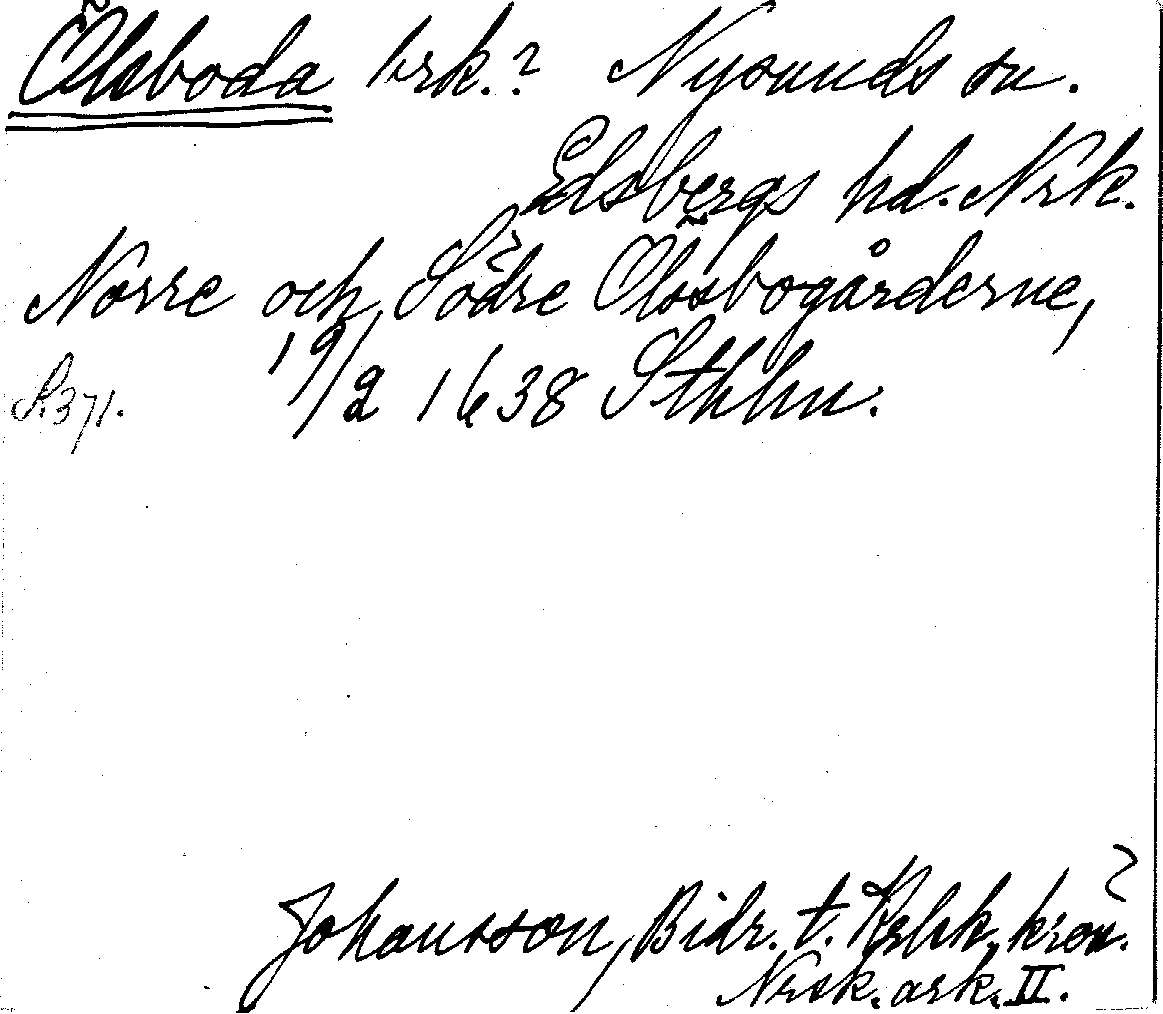 Ölsboda brk.? Nysunds sn.
Edsbergs hd. Nrk.
Norre och Södre Ölssbogårderne,
S. 371. 19/2 1638 Sthlm.
Johansson, Bidr. t. krön.
Nrsk. ark. II.